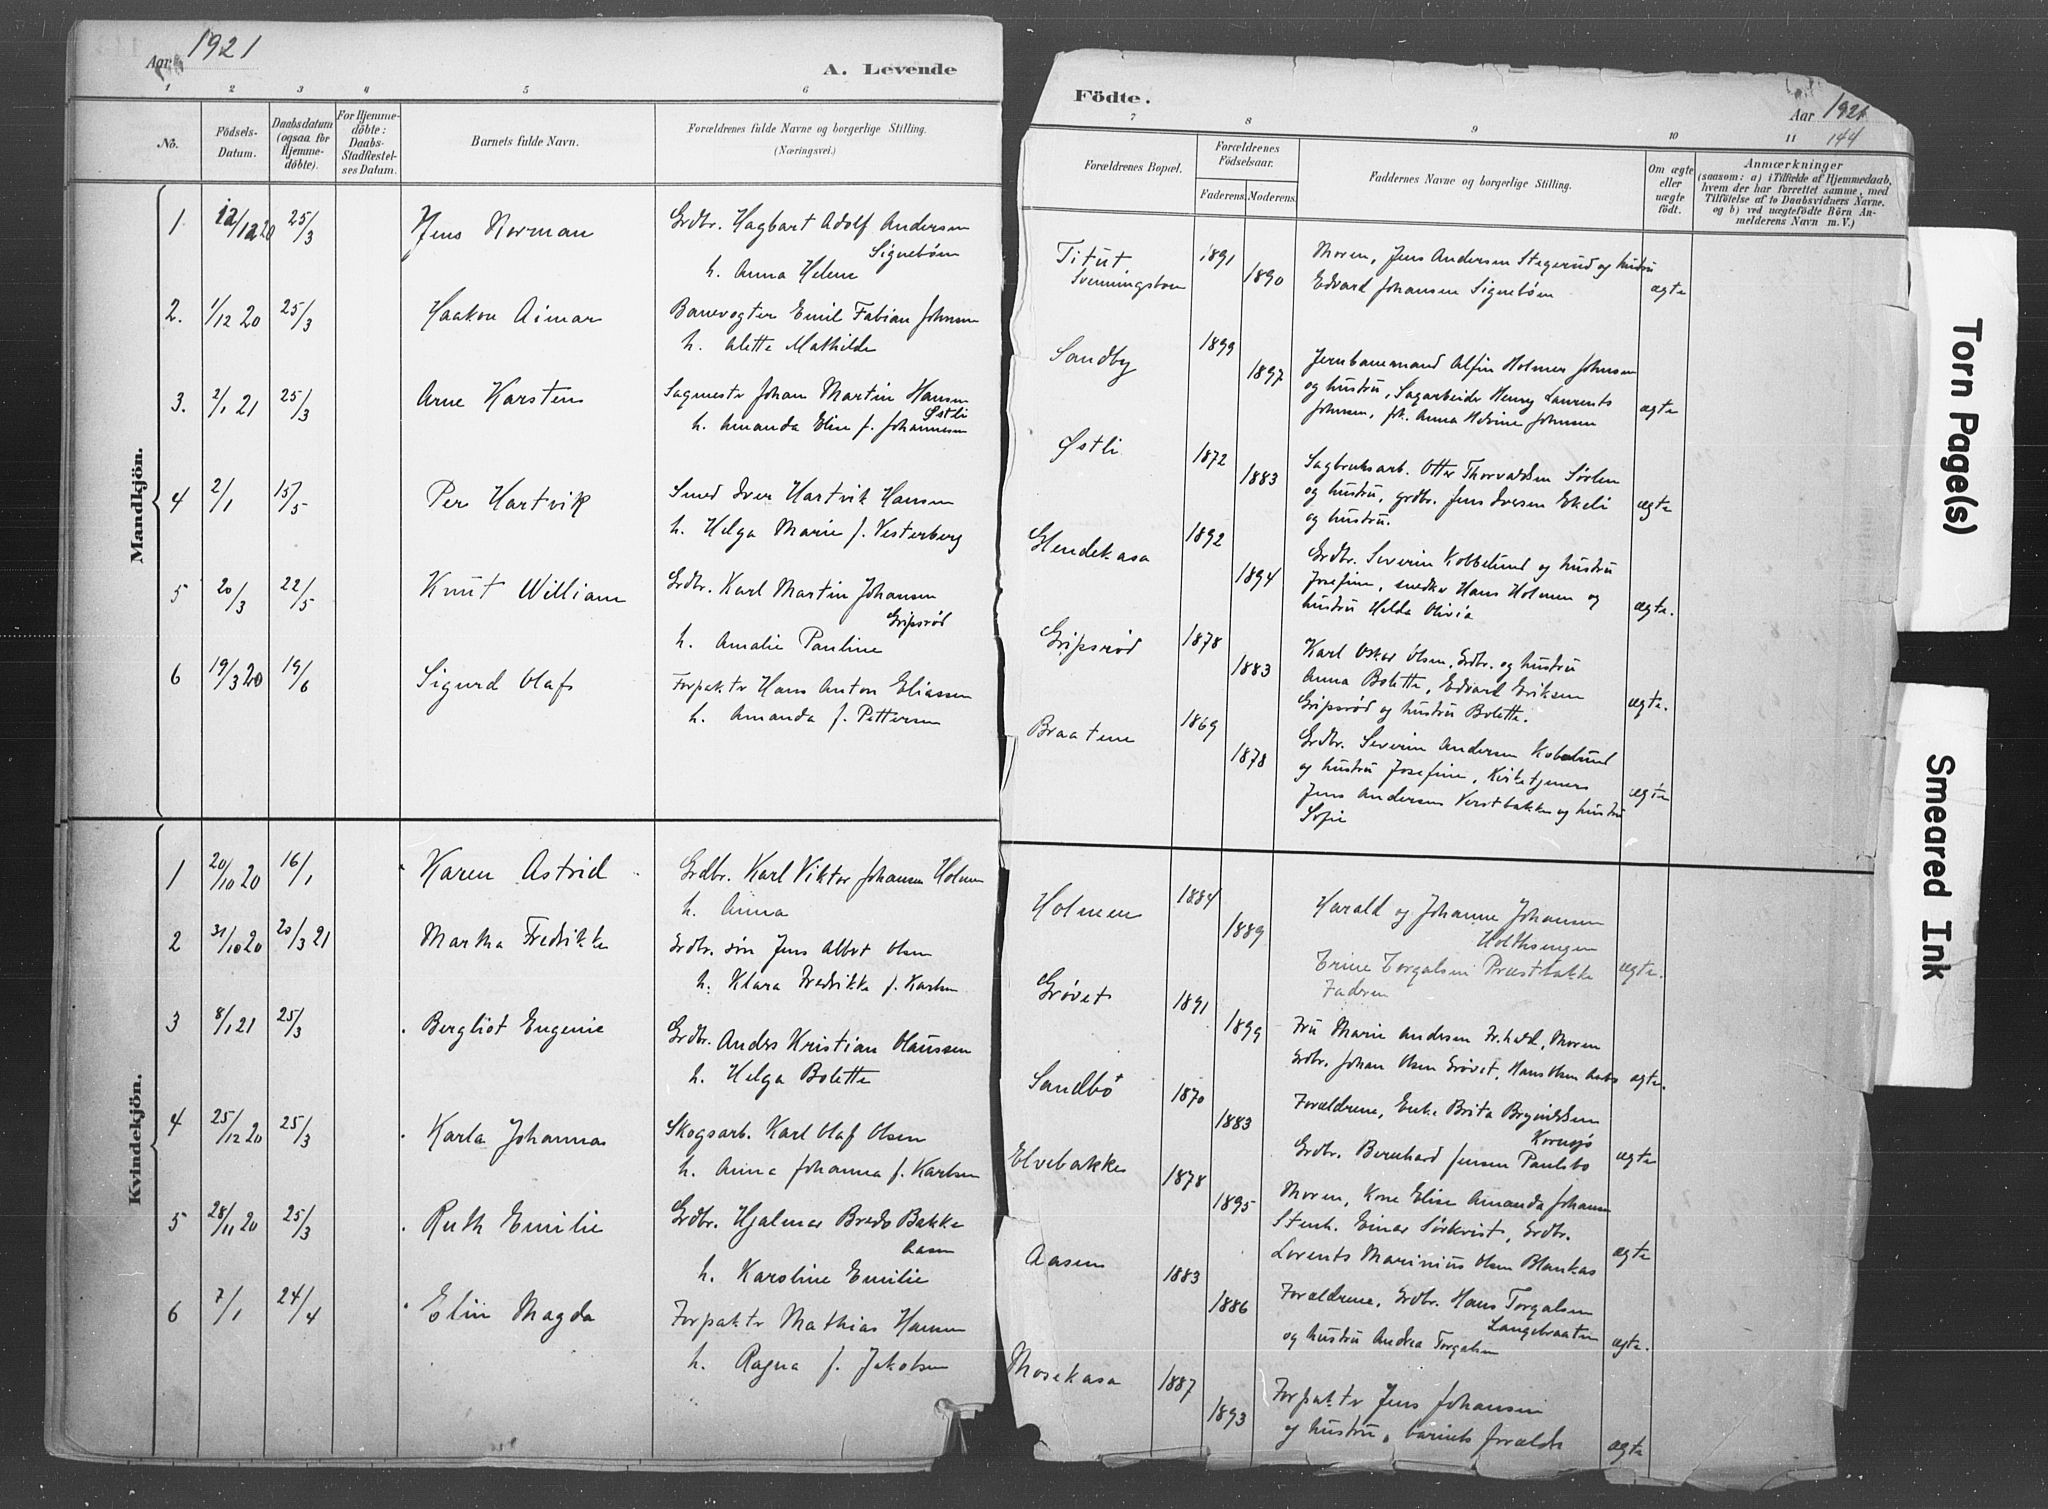 Aar 1921
A. Levende
1 2 3 4 5 6
No.
Födsels-
Datum.
Daabsdatum
(ogsaa for
Hjemme-
döbte).
For Hjemme-
döbte:
Daabs-
Stadfæstel-
ses Datum.
Barnets fulde Navn.
Forældrenes fulde Navne og borgerlige Stilling.
(Næringsvei.)
Mandkjön.
1 12/12 20 25/3 Jens Norman Grdbr. Hagbart Adolf Andersen
Signebøen
h. Anna Helene
2. 1/12 20 25/3 Haakon Aimar Banevogter Emil Fabian Johnsen
h. Alette Mathilde
3. 2/1 21 25/3 Arne Karsten Sagmester Johan Martin Hansen
Østli
h. Amanda Elise f. Johannesen
4 2/1 15/5 Per Hartvik Smed Iver Hartvik Hansen
h. Helga Marie f. Vesterberg
5 20/3 22/5 Knut William Grdbr. Karl Martin Johansen
Gripsrød
h. Amalie Pauline
6 19/3 20 19/6 Sigurd Olaf Forpakter Hans Anton Eliassen
h. Amanda f. Pettersen
Kvindekjön.
1 20/10 20 16/1 Karen Astrid Grdbr. Karl Viktor Johansen Holmen
h. Anna
2 31/10 20 20/3 21 Martha Fredrikke Grdbr. søn Jens Albert Olsen
h. Klara Fredrikke f. Karlsen
3 8/1 21 25/3 Bergliot Eugenie Grdbr. Anders Kristian Olaussen
h. Helga Bolette
4 25/12 20 25/3 Karla Johanna Skogsarb. Karl Olaf Olsen
h. Anna Johanna f. Karlsen
5 28/11 20 25/3 Ruth Emilie Grdbr. Hjalmar Bredo Bakke
Aasen
h. Karoline Emilie
6 7/1 24/4 Elin Magda Forpakter Mathias Hansen
h. Ragna f. Jakobsen
Födte.
Aar 1921
144
7 8 9 10 11
Forældrenes Bopæl.
Forældrenes
Födselsaar.
Faderens. Moderens.
Faddernes Navne og borgerlige Stilling.
Om ægte
eller
uægte
födt.
Anmærkninger
(saasom: a) i Tilfælde af Hjemmedaab,
hvem der har forrettet samme, med
Tilföielse af to Daabsvidners Navne.
og b) ved uægtefödte Börn An-
melderens Navn m. V.)
Titut 1891 Moren, Jens Andersen Stegerud og hustru
Svenningsboen 1890 Edvard Johansen Signebøen ægte
Sandby 1899 Jernbanemand Alfin Holmer Johnsen
1897 og hustru, Sagarbeider Henry Laurents
Johnsen, frk. Anna Hedvine Johnsen ægte
Østli 1872 Sagbruksarb. Otter Thorvaldsen Sørlen
1883 og hustru, grdbr. Jens Iversen Ekeli ægte
og hustru.
Glendekasa 1892 Grdbr. Severin Kobbelund og hustru
1894 Josefine, snedker Hans Holmen og
hustru Helda Olivia ægte.
Gripsrød 1878 Karl Oskar Olsen, Grdbr. og hustru
1883 Anna Bolette, Edvard Eriksen
Gripsrød og hustru Bolette. ægte.
Braatene 1869 Grdbr. Severin Andersen Kobelund
1878 og hustru Josefine, Kirketjener
Jens Andersen Verstbakken og hustru ægte
Sofie
Holmen 1884 Harald og Johanne Johansen
1889 Holthsengen
ægte.
Grøvet 1891 Trine Torgalsen Præstbakke
Faderen
1899 Fru Marie Andersen Fr.hald, Moren
Grdbr. Johan Olsen Grøvet, Hans Olsen ægte.
Sandbø 1870 Forældrene, Enke Brita Brynildsen
1883 Kornsjø
Grdbr. Bernhard Jensen Paulsbo ægte
Elvebakken 1878 Moren, Kone Elise Amanda Johansen
1895 Stenh. Einar Sørkvist, Grdbr.
Lorents Marinius Olsen Blankas ægte
Aasen 1883 Forældrene, Grdbr. Hans Torgalsen
1886 Langebraaten
og hustru Andrea Torgalsen ægte.
Mosekasa 1887 Forpakter Jens Johansen
1893 og hustru, barnets foreldre ægte
Torn Page(s)
Smeared Ink